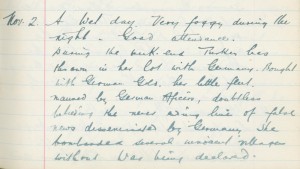 Nov. 2. A Wet day. Very foggy during the
night. Good attendance.
During the week-end Turkey has
thrown in her lot with Germany. Bought
with German Gold, her little fleet,
manned by German Officers, doubtless
believing the never ending lines of false
news disseminated by Germany, she
bombarded several innocent villages
without War being declared.